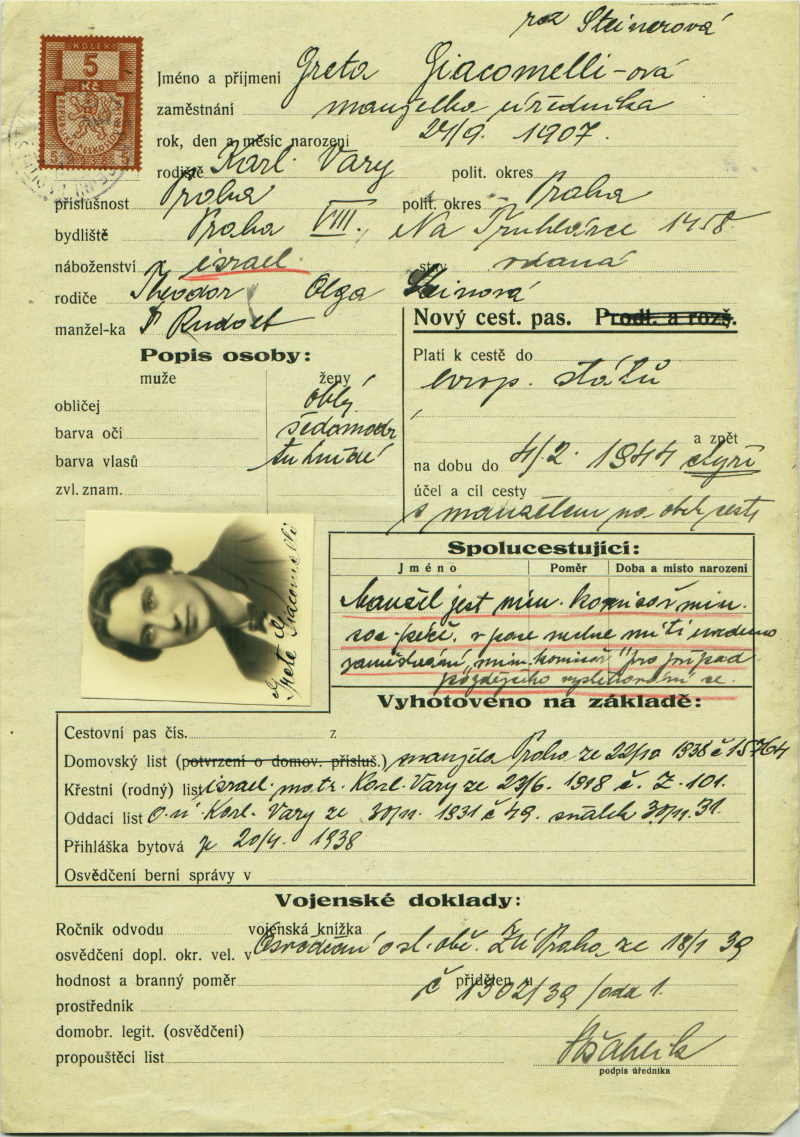 roz Steinerová
KOLEK
5
Kč
Jméno a příjmení Greta Giacomelli-ová
zaměstnání manželka úředníka
rok, den a měsíc narození 24/9. 1907.
rodiště Karl. Vary polit. okres
příslušnost Praha polit. okres Praha
bydliště Praha VIII., Na Truhlářce 1458
náboženství israel. stav vdaná
rodiče Theodor Olga Steinová
manžel-ka Rudolf
Nový cest. pas. Prodl. a rozš.
Popis osoby:
muže ženy
Platí k cestě do
evrop. států
obličej oblý
barva očí šedomodr
barva vlasů tm hnědé
zvl. znam.
a zpět
na dobu do 4/2. 1944 čtyři
účel a cíl cesty
s manželem na obch cestě
Spolucestující:
Jméno Poměr Doba a místo narození
Manžel jest min. komisař min.
soc. péče, v pase nechce míti uvedeno
zaměstnání „min. komisař" pro případ
pozdějšího vystěhování se.
Grete Giacomelli
Vyhotoveno na základě:
Cestovní pas čís. z
Domovský list (potvrzení o domov. přísluš.) manžela Praha ze 22/10 1938 č 15764
Křestní (rodný) list israel. matr. Karl. Vary ze 23/6. 1918 č. Z. 101.
Oddací list o. ú. Karl. Vary ze 30/11. 1931 č 49. sňatek 30/11. 31.
Přihláška bytová z 20/4. 1938
Osvědčení berní správy v
Vojenské doklady:
Ročník odvodu vojenská knížka
osvědčení dopl. okr. vel. v Osvědčení o st. obč. ZÚ Praha ze 18/1 39
hodnost a branný poměr přidělen u č 1302/39 /odd 1.
prostředník
domobr. legit. (osvědčení)
propouštěcí list
podpis úředníka